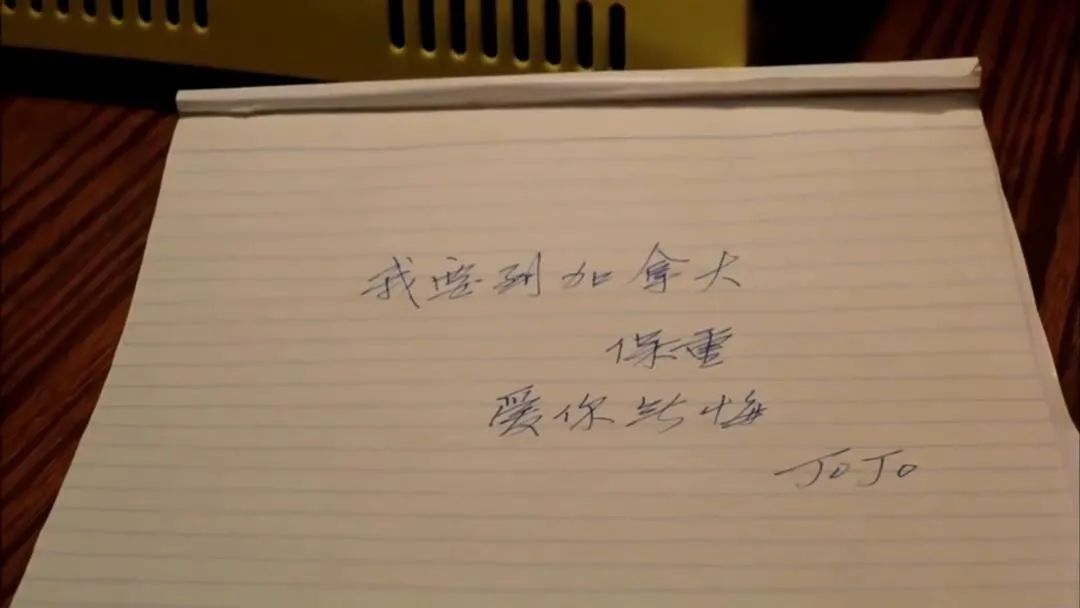 我要到加拿大
保重
爱你无悔
JOJO